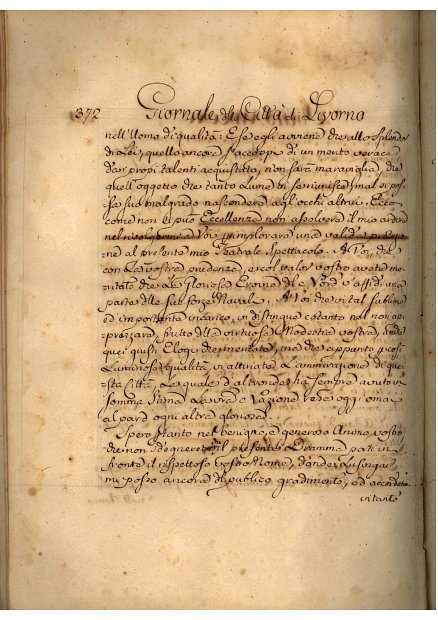 372 Giornale della Città di Livorno
nell'Uomo di qualità: E se egli avviene che allo Splendor
di Lei, quello ancora s'accoppi di un merito verace
da propri talenti acquistato, non sarà maraviglia, che
quell'oggetto che tanto Lume in se riunisce, mal si possa
se suo malgrado nascondere agl'occhi altrui. Ecco
come non si può Eccellenza non assolvere il mio ardire
nel rivolgermi a Voi, p implorare una valida protezio
ne al presente mio Teatrale Spettacolo. A Voi, che
con la vostra prudenza, e col valor vostro avete me
ritato che la Gloriosa Eroina del Nord v'affidi una
parte delle sue forze Navali. A Voi che in tal sublime
ed importante incarico, in distingue cotanto nel non ap
prezzare, frutto della virtuosa Modestia vostra,
quei giusti Elogi che meritate, ma che appunto p sì
Luminose qualità, vi attirate L'ammirazione di que
sta Città, La quale d'altronde ha sempre avuto in
somma Stima La vostra Nazione resa oggi omai
al pard ogni altra gloriosa.
Spero p tanto nel benigno, e generoso Animo vostro
che non sdegnerete che il presente Dramma porti in
fronte il rispettoso vostro Nome, donde Lusingar
mi posso ancora di publico gradimento, ed
intanto